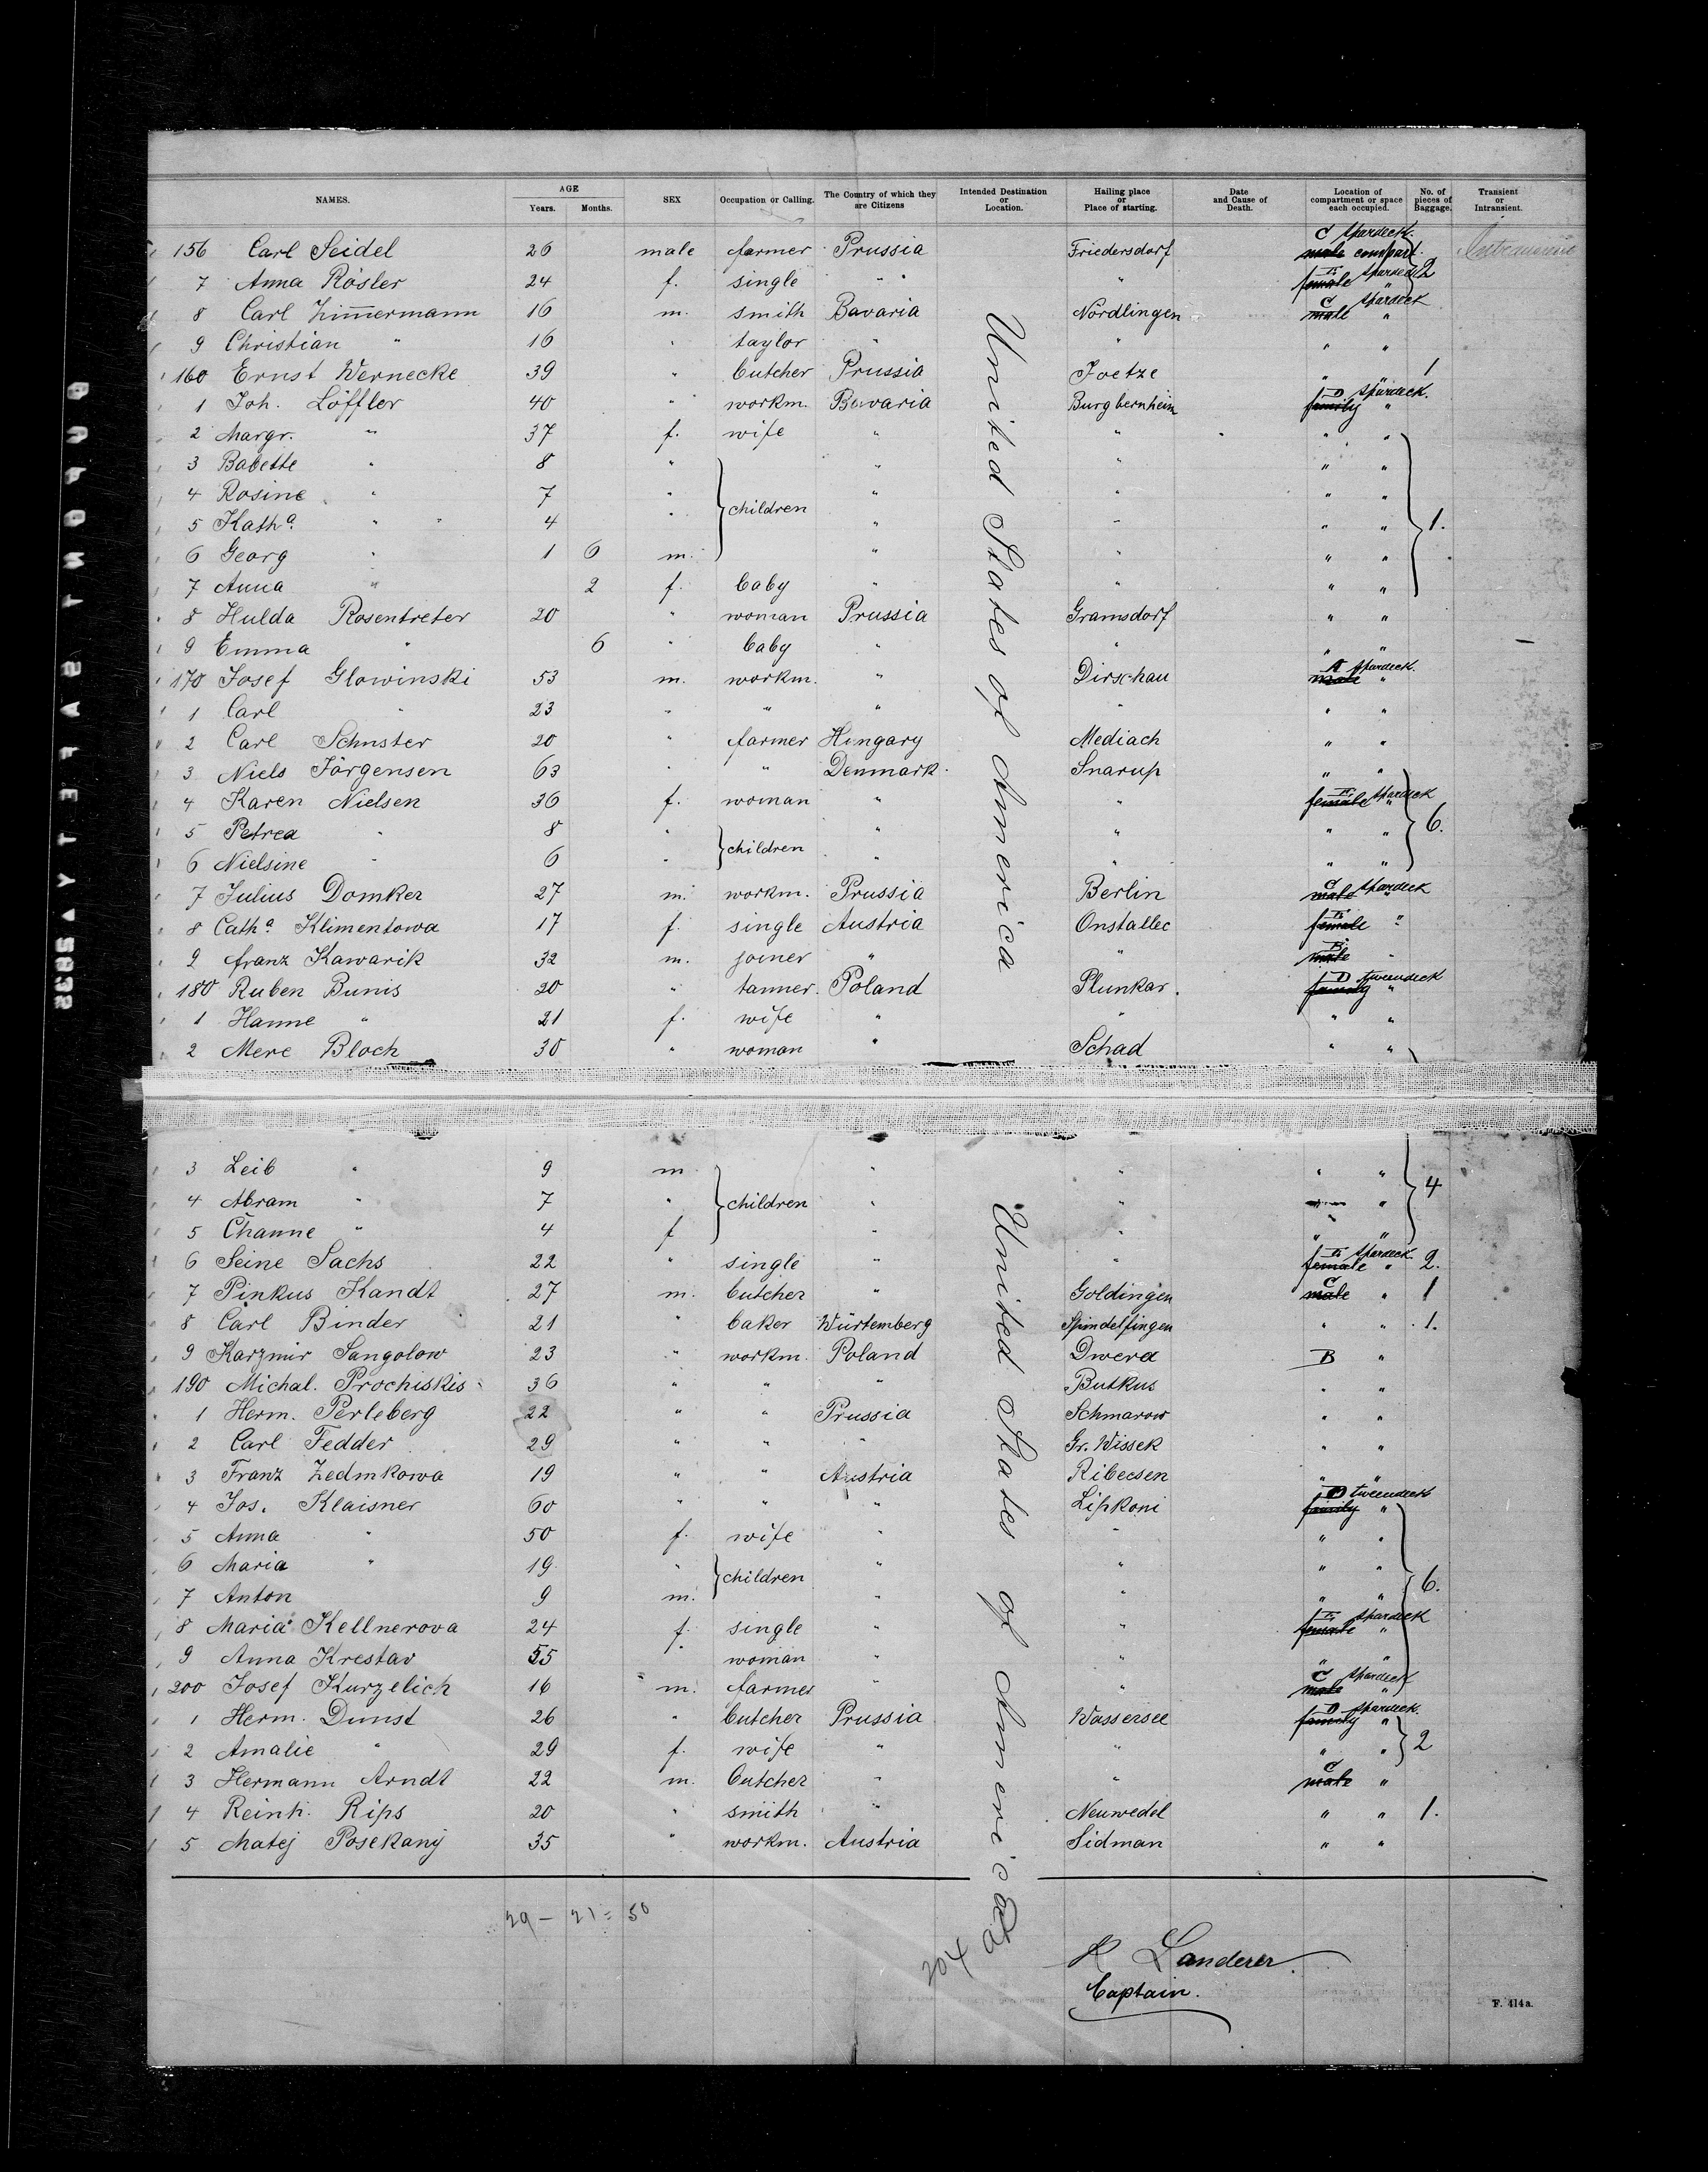 NAMES. AGE Years. Months. SEX Occupation or Calling. The Country of which they are Citizens Intended Destination or Location. Hailing place or Place of starting. Date and Cause of Death. Location of compartment or space each occupied. No. of pieces of Baggage. Transient or Intransient.
156 Carl Seidel 26 male farmer Prussia Friedersdorf C spardeck. male compart.
7 Anna Rösler 24 f. single " " " female spardeck 2
8 Carl Zimmermann 16 m. smith Bavaria Nördlingen C spardeck male "
9 Christian " 16 " taylor " " " "
160 Ernst Wernecke 39 " butcher Prussia Joetze " " 1
1 Joh. Löffler 40 " workm. Bavaria Burgbernheim D spardeck. family "
2 Margr. " 37 f. wife " " " "
3 Babette " 8 " " " " "
4 Rosine " 7 " children " " " "
5 Katha. " " 4 " " " " " 1.
6 Georg " 1 6 m. " " " "
7 Anna " 2 f. baby " " " "
8 Hulda Rosentreter 20 " woman Prussia Gramsdorf " "
9 Emma " 6 " baby " " " "
170 Josef Glowinski 53 m. workm. " Dirschau A spardeck. male "
1 Carl " 23 " " " " " "
2 Carl Schuster 20 " farmer Hungary Mediach " "
3 Niels Jörgensen 63 " " Denmark. Snarup " "
4 Karen Nielsen 36 f. woman " " female spardeck "
5 Petrea " 8 " children " " " " 6.
6 Nielsine " 6 " " " " "
7 Julius Domker 27 m. workm. Prussia Berlin C spardeck male "
8 Catha. Klimentowa 17 f. single Austria Onstallec female "
9 Franz Kawarik 32 m. joiner " " B male "
180 Ruben Bunis 20 " tanner. Poland Plunkar. D tweendeck family "
1 Hanne " 21 f. wife " " " "
2 Mere Bloch 30 " woman " Schad " "
United States of America
3 Leib " 9 m " " " "
4 Abram " 7 " children " " " 4
5 Channe " 4 f " " " "
6 Seine Sachs 22 " single " " spardeck. female " 2.
7 Pinkus Kandt 27 m. butcher " Goldingen C male " 1
8 Carl Binder 21 " baker Würtemberg Spindelfingen " " 1.
9 Karzmir Sangolow 23 " workm. Poland Dwera B "
190 Michal. Prochiskis 36 " " " Butkus " "
1 Herm. Perleberg 22 " " Prussia Schmarow " "
2 Carl Fedder 29 " " " Gr. Wissek " "
3 Franz Zedmkowa 19 " " Austria Ribecsen " "
4 Jos. Klaisner 60 " " " Lipkoni D tweendeck family "
5 Anna " 50 f. wife " " " "
6 Maria " 19 " children " " " "
7 Anton 9 m. " " " " 6.
8 Maria Kellnerova 24 f. single " " spardeck female "
9 Anna Krestav 55 " woman " " " "
200 Josef Kurzelich 16 m. farmer " " C spardeck male "
1 Herm. Dunst 26 " butcher Prussia Wassersee D spardeck. family "
2 Amalie " 29 f. wife " " " " 2
3 Hermann Arndt 22 m. butcher " " C male "
4 Reinh. Rips 20 " smith " Neuwedel " " 1.
5 Matej Posekanij 35 " workm. Austria Sidman " "
United States of America
29 - 21 = 50
204
H Landerer.
Captain.
F. 414a.